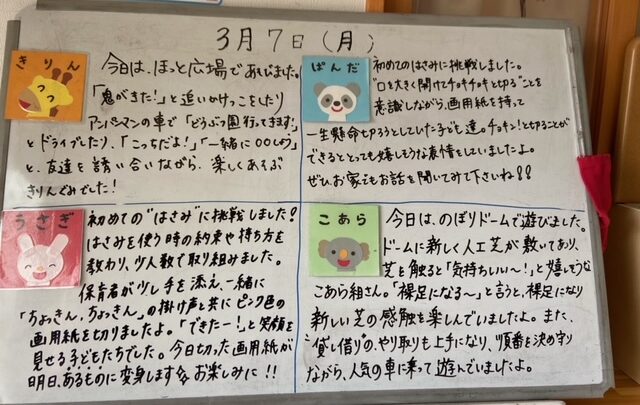 3月7日(月)
きりん
今日は、ほっと広場であそびました。
「鬼がきた!」と追いかけっこをしたり
アンパンマンの車で「どうぶつ園行ってきます!」
とドライブしたり、「こっちだよ!」「一緒に〇〇しよう」
と、友達を誘い合いながら、楽しくあそぶ
きりんぐみでした!
ぱんだ
初めてのはさみに挑戦しました。
"口を大きく開けてチョキチョキと切る"ことを
意識しながら、画用紙を持って
一生懸命切ろうとしていた子ども達。チョキン!と切ることが
できるととっても嬉しそうな表情をしていましたよ。
ぜひ、お家でもお話を聞いてみて下さいね!!
うさぎ
初めての"はさみ"に挑戦しました!
はさみを使う時の約束や持ち方を
教わり、少人数で取り組みました。
保育者が少し手を添え、一緒に
「ちょっきん、ちょっきん」の掛け声と共にピンク色の
画用紙を切りましたよ。「できたー!」と笑顔を
見せる子どもたちでした。今日切った画用紙が
明日、あるものに変身します お楽しみに!!
こあら
今日は、のぼりドームで遊びました。
ドームに新しく人工芝が敷いてあり、
芝を触ると「気持ちしいい〜!」と嬉しそうな
こあら組さん。「裸足になる〜」と言うと、裸足になり
新しい芝の感触を楽しんでいましたよ。また、
"貸し借り"の、やり取りも上手になり、順番を決め守り
ながら、人気の車に乗って遊んでいましたよ。